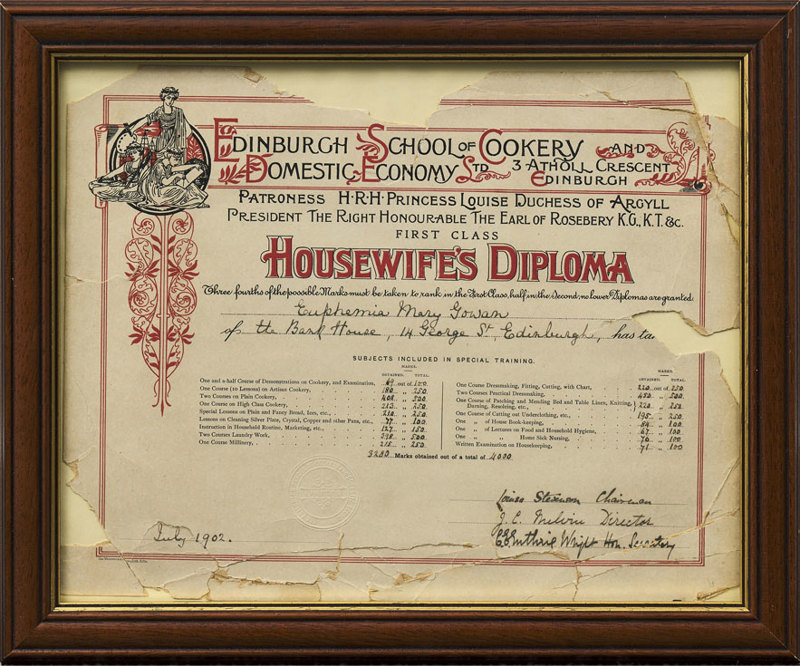 EDINBURGH SCHOOL OF COOKERY AND
DOMESTIC ECONOMY LTD 3 ATHOLL CRESCENT
EDINBURGH
PATRONESS H·R·H· PRINCESS LOUISE DUCHESS OF ARGYLL
PRESIDENT THE RIGHT HONOURABLE THE EARL OF ROSEBERY K.G., K.T. &C.
FIRST CLASS
HOUSEWIFE'S DIPLOMA
Three fourths of the possible Marks must be taken to rank in the First Class, half in the Second, no lower Diplomas are granted
Euphemia Mary Gowan
of the Bank House, 14 George St, Edinburgh, has ta
SUBJECTS INCLUDED IN SPECIAL TRAINING.
MARKS.
OBTAINED. TOTAL.
One and a half Course of Demonstrations on Cookery, and Examination, 69 out of 100
One Course (10 Lessons) on Artisan Cookery, 180 „ 250
Two Courses on Plain Cookery, 408 „ 500
One Course on High Class Cookery, 212 „ 250
Special Lessons on Plain and Fancy Bread, Ices, etc., 210 „ 250
Lessons on Cleaning Silver Plate, Crystal, Copper and other Pans, etc., 77 „ 100
Instruction in Household Routine, Marketing, etc., 127 „ 150
Two Courses Laundry Work, 398 „ 500
One Course Millinery, 215 „ 250
MARKS.
OBTAINED. TOTAL.
One Course Dressmaking, Fitting, Cutting, with Chart, 220 out of 250
Two Courses Practical Dressmaking, 450 „ 500
One Course of Patching and Mending Bed and Table Linen, Knitting,
Darning, Resoling, etc., 220 „ 250
One Course of Cutting out Underclothing, etc., 195 „ 250
One „ of House Book-keeping, 84 „ 100
One „ of Lectures on Food and Household Hygiene, 67 „ 100
One „ „ Home Sick Nursing, 70 „ 100
Written Examination on Housekeeping, 71 „ 100
3280 Marks obtained out of a total of 4000.
Louisa Stevenson Chairman
J. E. Melvin Director
C. E. Guthrie Wright Hon. Secretary
July 1902.